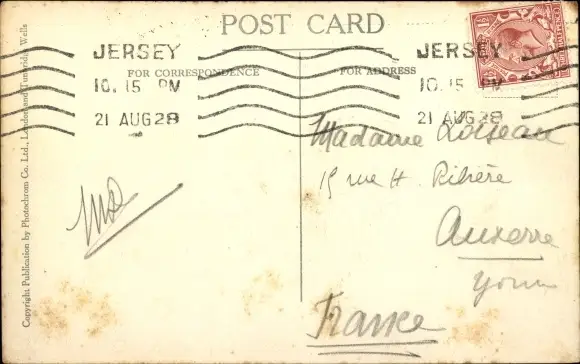 POST CARD
JERSEY
10. 15 PM
21 AUG 28
JERSEY
10. 15 PM
21 AUG 28
FOR CORRESPONDENCE
FOR ADDRESS
Madame Loiseau
15 rue H. Ribière
Auxerre
Yonne
France
Copyright Publication by Photochrom Co. Ltd., London and Tunbridge Wells